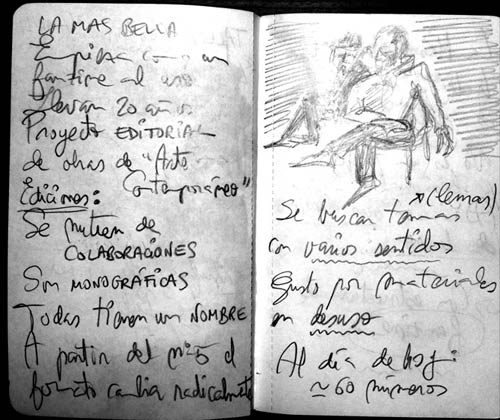 LA MAS BELLA
Empieza como un
fanzine al uso
Llevan 20 años
Proyecto EDITORIAL
de obras de "Arte
Contemporáneo"
Ediciones:
Se nutren de
COLABORACIONES
Son MONOGRÁFICAS
Todas tienen un NOMBRE
A partir del nº5 el
formato cambia radicalmente
(lemas)
Se buscan temas
con varios sentidos
Gusto por materiales
en desuso
Al día de hoy:
≃ 60 números